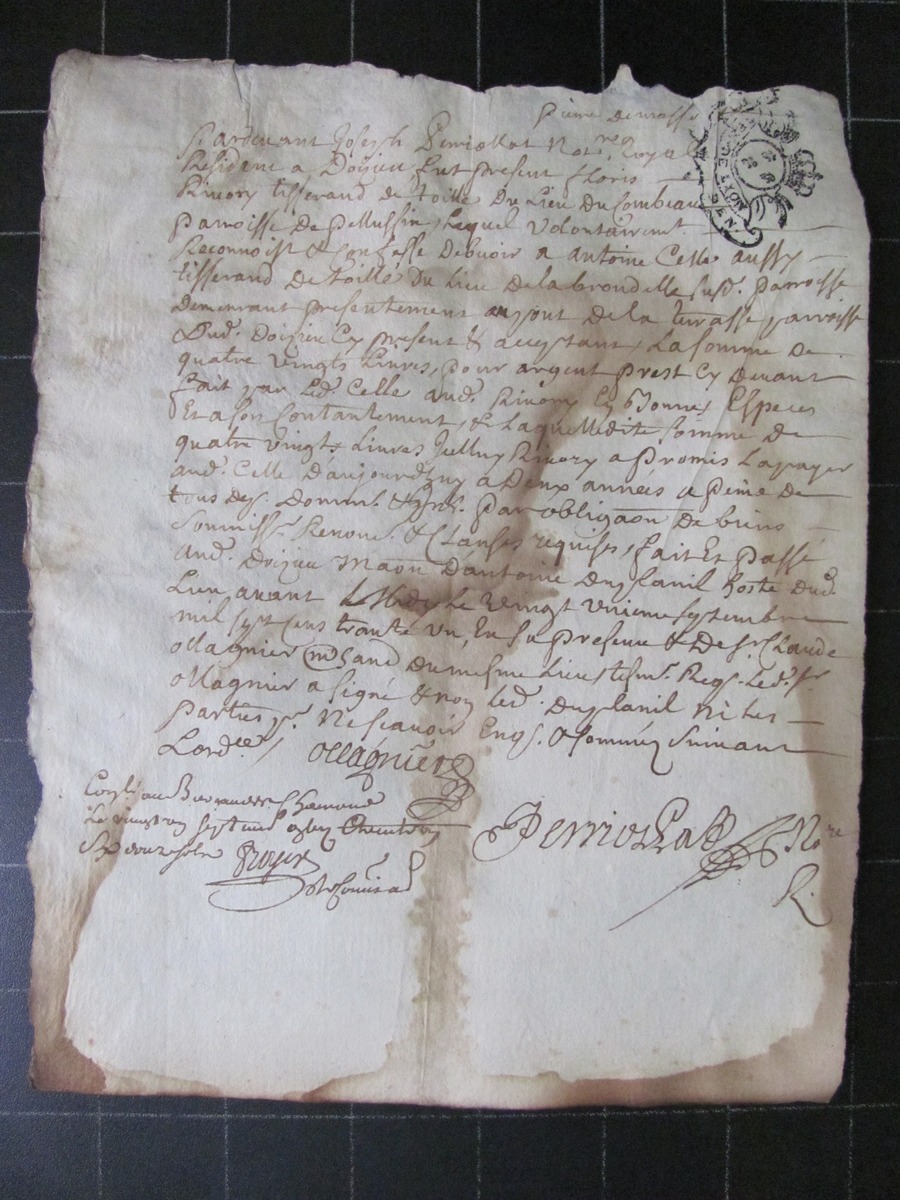 Pardevant Joseph Perriollat Notre Royal
Résident a Doizieu fut présent floris
Rivory tisserand de toille Du Lieu Du Combeau
parroisse De pellussin, Lequel volontairemt
Reconnoist & confesse debvoir a antoine Celle aussy
tisserand De toille Du Lieu De la brondelle susd. parroisse
Demeurant presentement au pont de la terrasse parroisse
Dud. Doizieu Cy present & acceptant, La somme De
quatre vingts Livres, pour argent prest Cy devant
fait par Led. Celle aud. Rivory En bonnes Especes
Et a son Contantement, & Laquelle dite somme De
quatre vingts Livres Rivory a promis La payer
aud. Celle D'aujourdhuy a Deux années a peine De
tous des. Domm. & par obligaon De biens
Soumiss. Renonc. & Clauses requises, fait Et passé
aud. Doizieu Maon D'antoine Duplanil hoste dud.
Lieu avant Midy Le vingt unieme septembre
mil sept cens trante un, En presence & De Sr Claude
ollagnier mchand Du mesme Lieu tesm. Reqs. Led. sr
ollagnier a signé & non led. Duplanil ni Les
parties pr. Ne scavoir Enqs. & sommés suivant
Lord.ce / ollagnier
Conlé au Bureau de St Chamond
Le vingt un sept
Rx douze sols
Perriollat Nore
R.